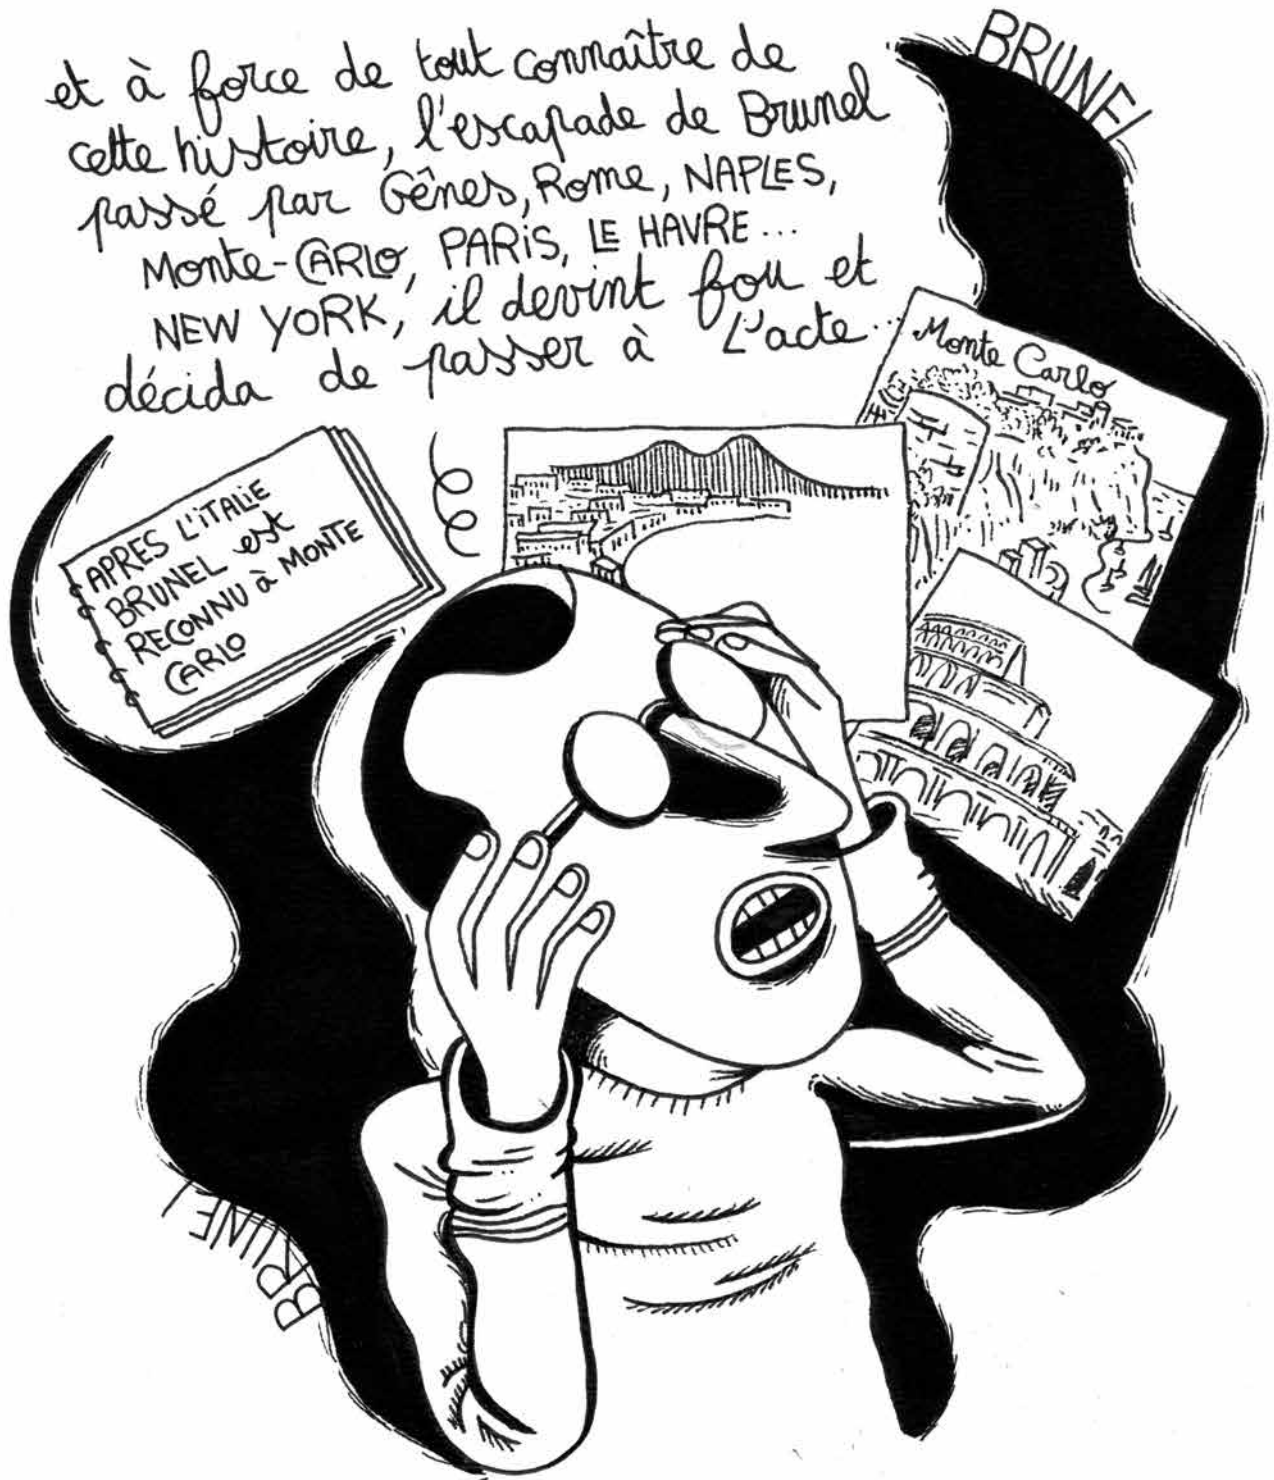 et à force de tout connaître de
cette histoire, l'escapade de Brunel
passé par Gênes, Rome, NAPLES,
Monte-CARLO, PARIS, LE HAVRE...
NEW YORK, il devint fou et
décida de passer à L'acte...
BRUNEL
Monte Carlo
APRES L'ITALIE
BRUNEL est
RECONNU à MONTE
CARLO
BRUNEL